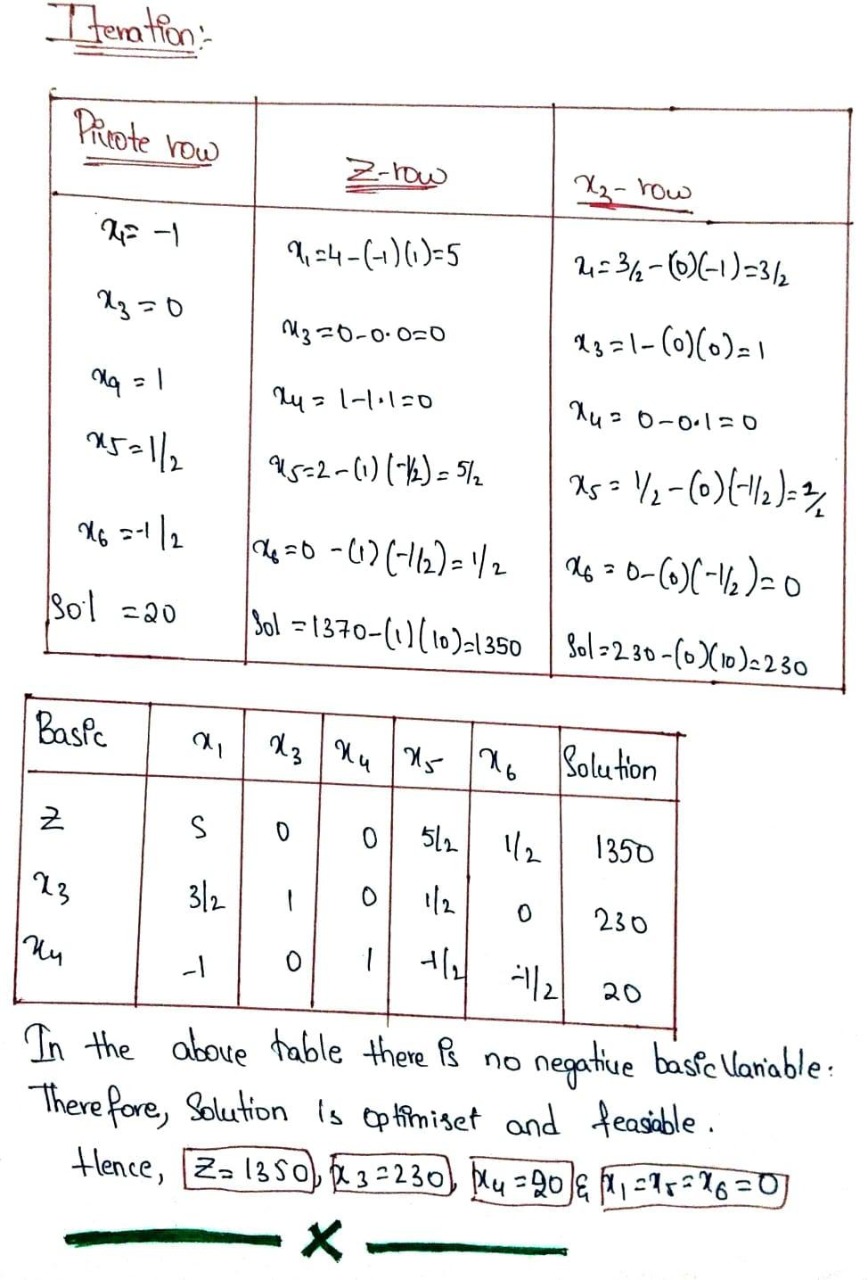 Iteration:-
Pivote row
Z-row
x3-row
x1= -1
x1=4-(-1)(1)=5
x1=3/2-(0)(-1)=3/2
x3=0
x3=0-0.0=0
x3=1-(0)(0)=1
x4=1
x4=1-1.1=0
x4=0-0.1=0
x5=1/2
x5=2-(1)(-1/2)=5/2
x5=1/2-(0)(-1/2)=
x6=-1/2
x6=0-(1)(-1/2)=1/2
x6=0-(0)(-1/2)=0
Sol =20
Sol =1370-(1)(10)=1350
Sol=230-(0)(10)=230
Basic x1 x3 x4 x5 x6 Solution
Z 5 0 0 5/2 1/2 1350
x3 3/2 1 0 1/2 0 230
x4 -1 0 1 -1/2 -1/2 20
In the above table there is no negative basic Variable.
Therefore, Solution is optimiset and feasiable.
Hence, Z=1350, x3=230, x4=20 & x1=x5=x6=0
x